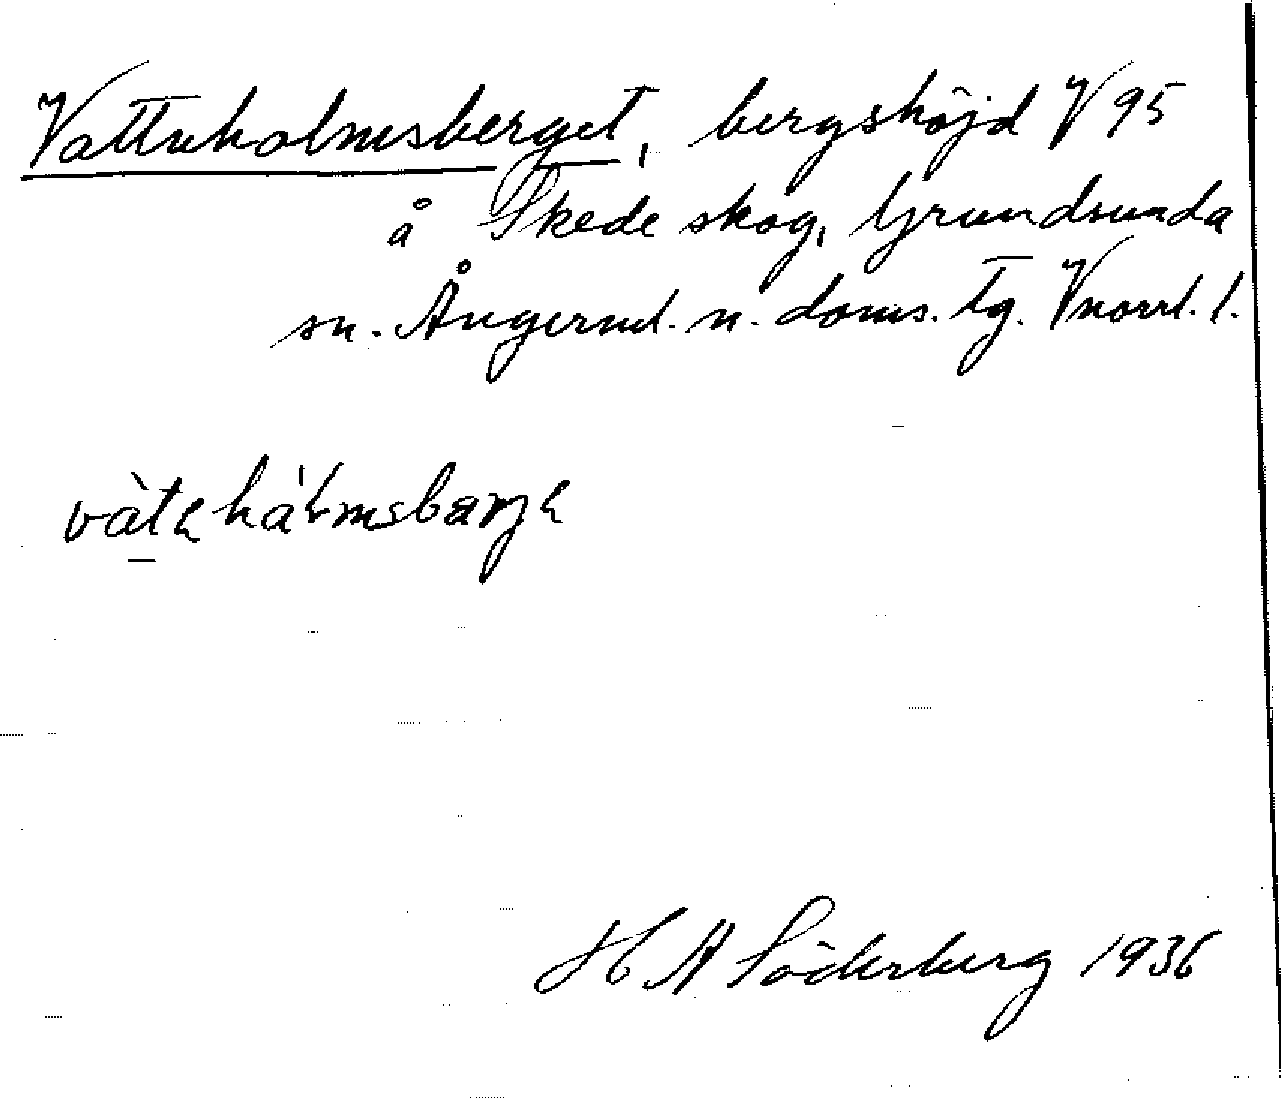 Vattuholmsberget, bergshöjd V 95
å Skede skog, Grundsunda
sn. Ångerml. n. doms. tg. Vnorrl. l.
H A Söderberg 1936